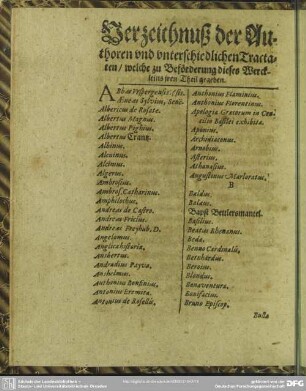 Verzeichnuß der Au-
thoren vnd vnterschiedlichen Tracta-
ten / welche zu Beförderung dieses Werck-
leins jren Theil gegeben.
Abbas Vrspergensis.
Aeneas Sylvius,
Albericus de Rosate.
Albertus Magnus.
Albertus Pighius.
Albertus Crantz.
Albinus.
Alcuinus.
Alcimus.
Algerus.
Ambrosius.
Ambros. Catharinus.
Amphilochus.
Andreas de Castro.
Andreas Fricius.
Andreas Freyhub, D.
Angelomus.
Anglica historia.
Ansbertus.
Andradius Payva.
Anshelmus.
Anthonius Bonfinius.
Antonius Eremita.
Antonius de Rosellis,
Anthonius Flaminius.
Anthonius Florentinus.
Apologia Gratorum in Con-
cilio Basileæ exhibita.
Aponius.
Archidiaconus.
Arnobius.
Asterius.
Athanasius.
Augustinus Marloratus.
B
Baldus.
Balæus.
Bapst Bettlersmantel.
Basilius.
Beatus Rhenanus.
Beda.
Benno Cardinalis,
Bernhardus.
Berosus.
Blondus.
Bonaventura.
Bonifacius.
Bruno Episcop.
Bulla